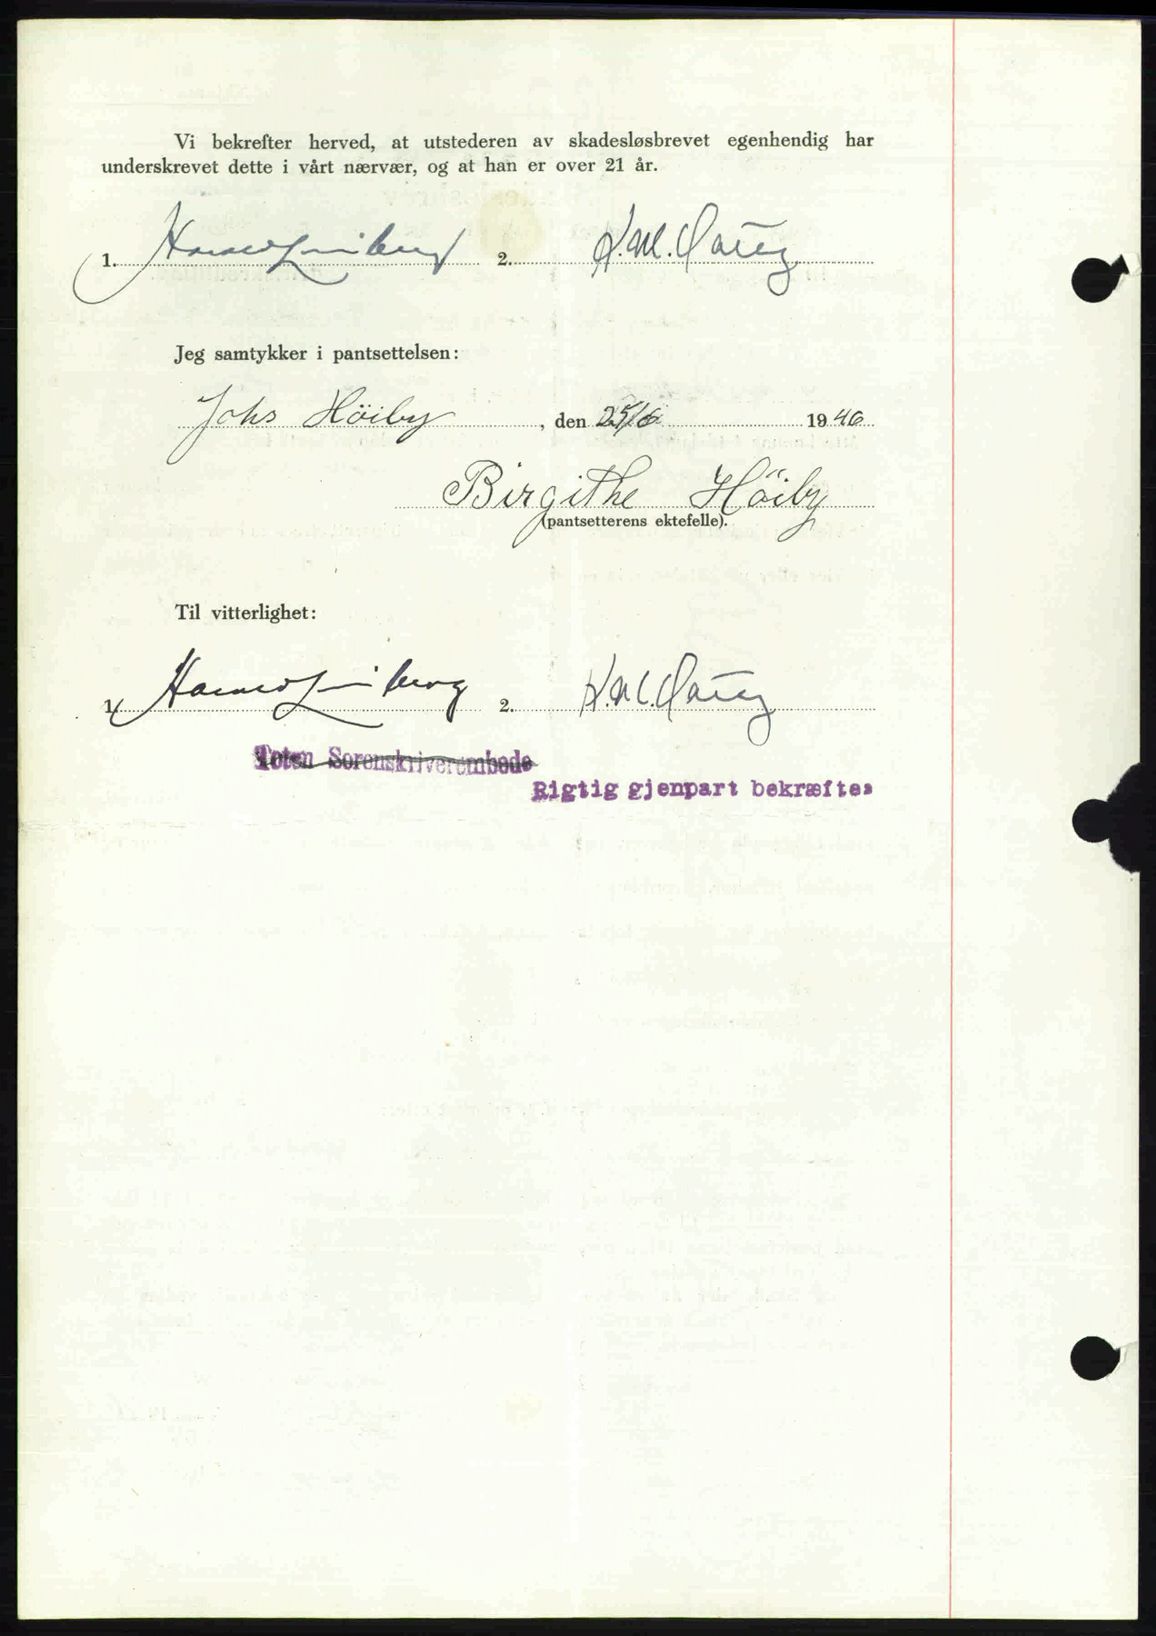 Vi bekrefter herved, at utstederen av skadesløsbrevet egenhendig har
underskrevet dette i vårt nærvær, og at han er over 21 år.
1. 2. K.M.
Jeg samtykker i pantsettelsen:
Johs Höiby, den 25/6 1946
Birgithe Höiby
(pantsetterens ektefelle).
Til vitterlighet:
1. 2. K.M.
Toten Sorenskriverembede
Rigtig gjenpart bekræftes